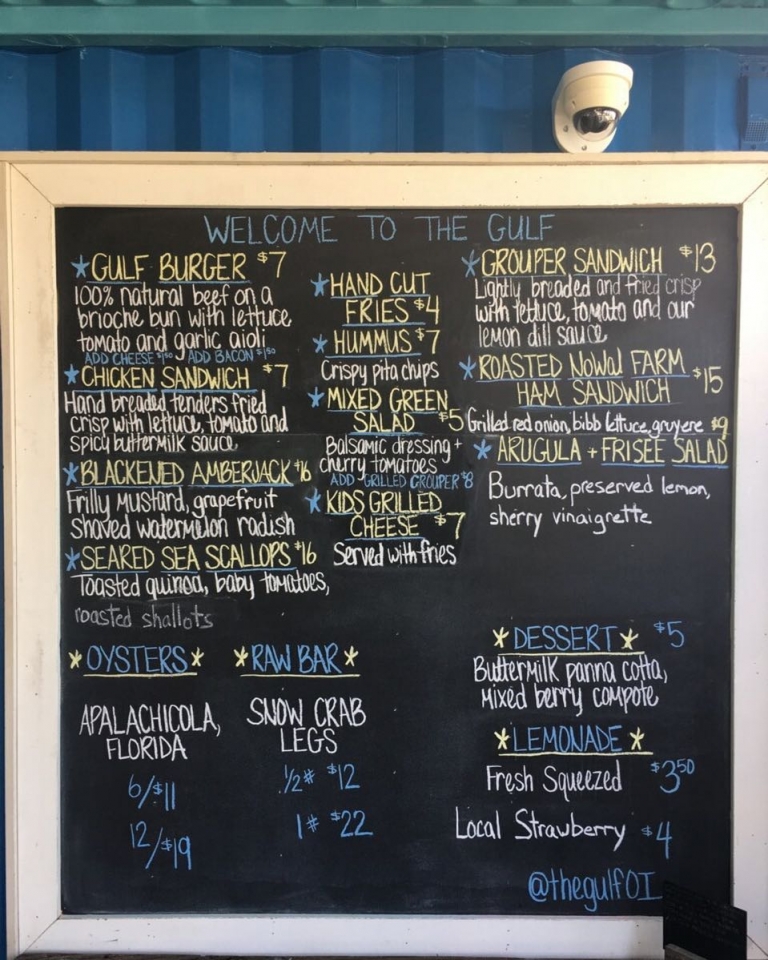 WELCOME TO THE GULF
*GULF BURGER $7
100% natural beef on a
brioche bun with lettuce
tomato and garlic aioli
ADD CHEESE $1.50 ADD BACON $1.50
*CHICKEN SANDWICH $7
Hand breaded tenders fried
crisp with lettuce, tomato and
spicy buttermilk sauce
*BLACKENED AMBERJACK $16
Frilly mustard, grapefruit
shaved watermelon radish
*SEARED SEA SCALLOPS $16
Toasted quinoa, baby tomatoes,
roasted shallots
*HAND CUT
FRIES $4
*HUMMUS $7
Crispy pita chips
*MIXED GREEN
SALAD $5
Balsamic dressing +
cherry tomatoes
ADD GRILLED GROUPER $8
*KIDS GRILLED
CHEESE $7
Served with fries
*GROUPER SANDWICH $13
Lightly breaded and fried crisp
with lettuce, tomato and our
lemon dill sauce
*ROASTED NoWaL FARM
HAM SANDWICH $15
Grilled red onion, bibb lettuce, gruyere
*ARUGULA + FRISEE SALAD $9
Burrata, preserved lemon,
sherry vinaigrette
*OYSTERS*
APALACHICOLA,
FLORIDA
6/$11
12/$19
*RAW BAR*
SNOW CRAB
LEGS
1/2# $12
1# $22
*DESSERT* $5
Buttermilk panna cotta,
mixed berry compote
*LEMONADE*
Fresh Squeezed $3.50
Local Strawberry $4
@thegulfOI